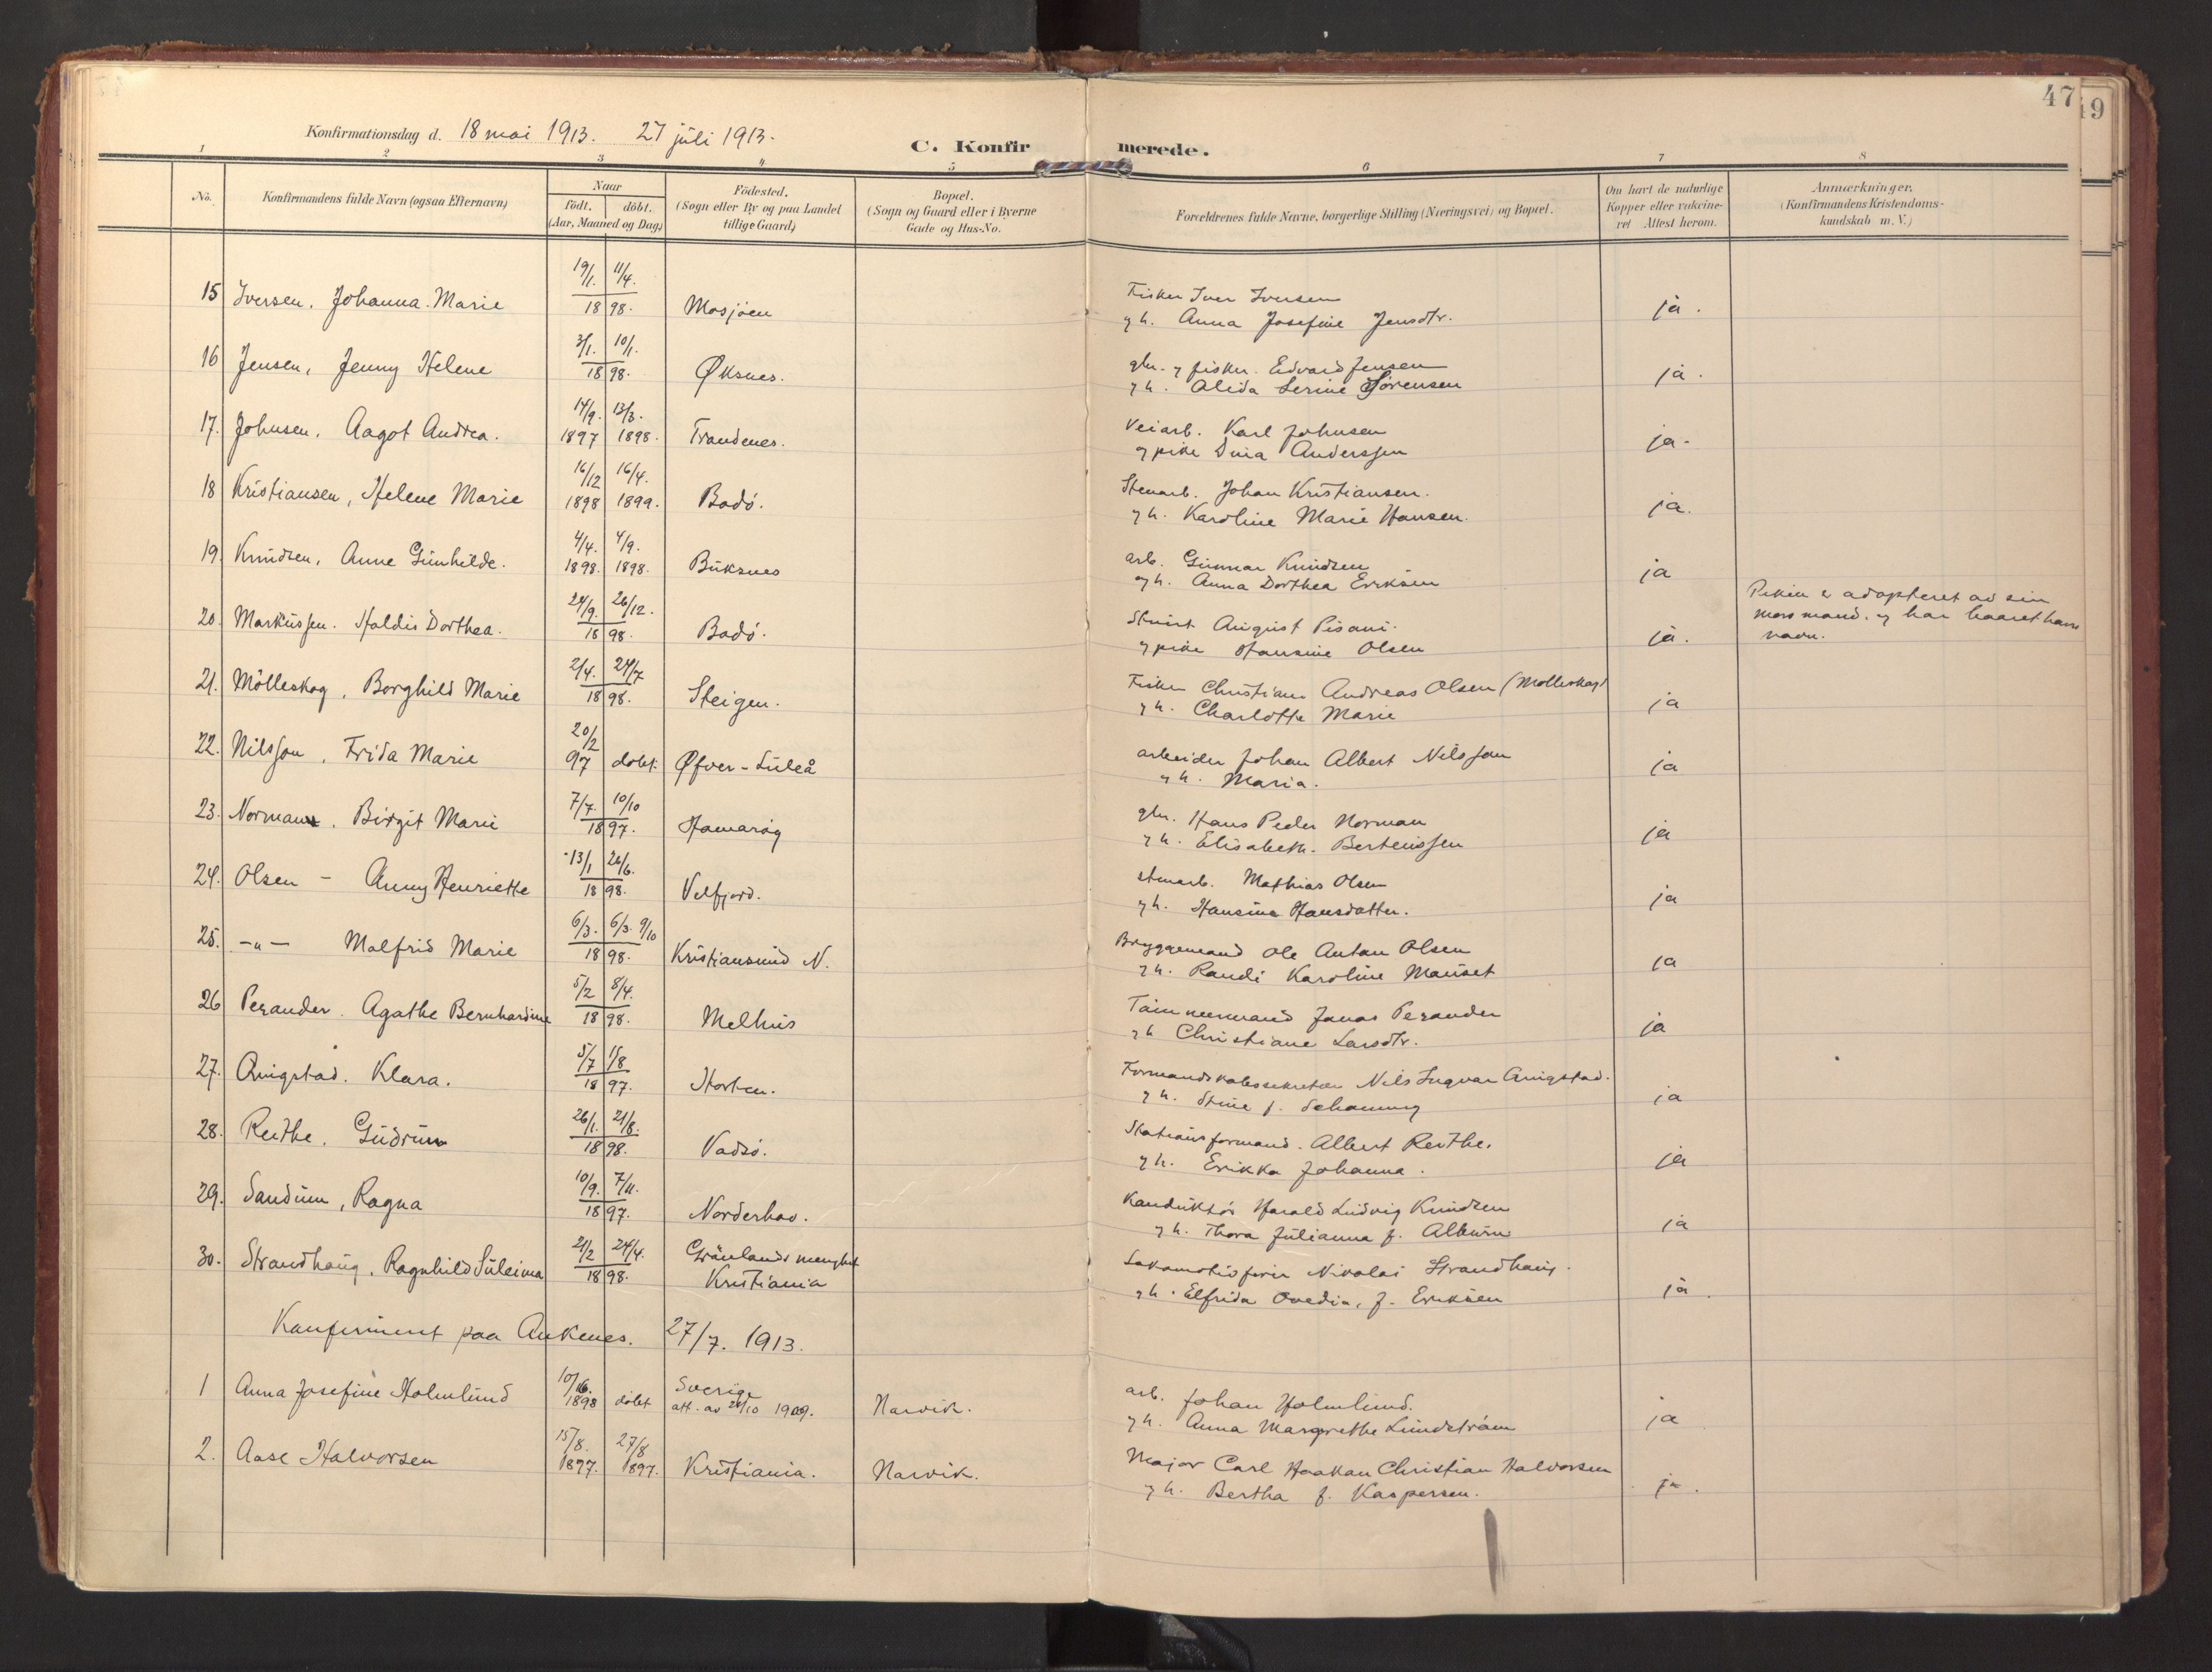 47
49
Konfirmationsdag d. 18 mai 1913. 27 juli 1913.
C. Konfirmerede.
1 2 3 4 5 6 7 8
No.
Konfirmandens fulde Navn (ogsaa Efternavn)
Naar
födt. döbt.
(Aar, Maaned og Dag)
Födested.
(Sogn eller By og paa Landet
tillige Gaard)
Bopæl.
(Sogn og Gaard eller i Byerne
Gade og Hus-No.
Forældrenes fulde Navne, borgerlige Stilling (Næringsvei) og Bopæl.
Om havt de naturlige
Kopper eller vakcine-
ret Attest herom.
Anmærkninger.
(Konfirmandens Kristendoms-
kundskab m. V.)
15 Iversen, Johanna Marie 19/1. 11/4. 1898. Mosjöen Fisker Iver Iversen ja.
og h. Anna Josefine Jensdtr.
16 Jensen, Jenny Helene 3/1. 10/1. 1898. Øksnes. gbr. og fisker. Edvard Jensen ja.
og h. Alida Serine Sörensen
17. Johnsen, Aagot Andrea. 14/9. 1897 13/3. 1898. Trandenes. Veiarb. Karl Johnsen ja.
og pike Dina Anderssen
18 Kristiansen, Helene Marie 16/12 1898 16/4. 1899. Bodö. Stenarb. Johan Kristiansen. ja.
og h. Karoline Marie Hansen.
19. Knudsen, Anne Gunhilde. 4/4. 1898. 4/9. 1898. Buksnes arb. Gunnar Knudsen ja
og h. Anna Dorthea Eriksen
20. Markussen. Haldis Dorthea. 24/9. 26/12. 1898. Bodö. August Pisani. ja.
og pike Hansine Olsen
Piken er adopteret av sin
mors mand, og har baaret hans
navn.
21. Mölleskog, Borghild Marie 2/4. 24/7 1898. Steigen. Fisker Christian Andreas Olsen (Mölleskog) ja
og h. Charlotte Marie
22. Nilsson, Frida Marie 20/2 97 döbt. Øfver-Luleå arbeider Johan Albert Nilsson ja
og h. Maria.
23. Normann. Birgit Marie 7/7. 10/10 1897. Hamaröy gbr. Hans Peder Norman ja
og h. Elisabeth. Berteussen
24. Olsen - Anny Henriette 13/1 26/6. 1898. Velfjord. stenarb. Mathias Olsen ja
og h. Hansine Hansdatter.
25. -"- Malfrid Marie 6/3. 6/3. 9/10 1898. Kristiansund N. Bryggemand Ole Anton Olsen ja
og h. Randi Karoline Mauset
26 Perander. Agathe Bernhardine 5/2 8/4. 1898. Melhus Tömmermand Jonas Perander ja
og h Christiane Larsdtr.
27. Qvigstad. Klara. 5/7 15/8 1897. Horten. Formandskabssekretær Nils Ingvar Qvigstad. ja
og h. Stine f. Schanning
28. Reithe. Gudrun 26/1. 21/8. 1898. Vadsö. Stationsformand. Albert Reithe. ja
og h. Erikka Johanna.
29. Sandum, Ragna 10/9. 7/11. 1897. Norderhov. Konduktör Harald Ludvig Knudsen ja
og h. Thora Julianna f. Alburn
30. Strandhaug, Ragnhild Suleima 21/2 24/4. 1898. Grönlands menghet
Kristiania Lokomotivförer Nikolai Strandhaug. ja.
og h. Elfrida Ovedia, f. Eriksen
Konfirmert paa Ankenes. 27/7. 1913.
1 Anna Josefine Holmlund 10/6. 1898 döbt Sverige
att. av 24/10 1909. Narvik. arb. Johan Holmlund. ja
og h. Anna Margrethe Lundström
2. Aase Halvorsen 15/8. 1897. 27/8 1897. Kristiania. Narvik. Major Carl Haakon Christian Halvorsen ja.
og h. Bertha f. Kaspersen.